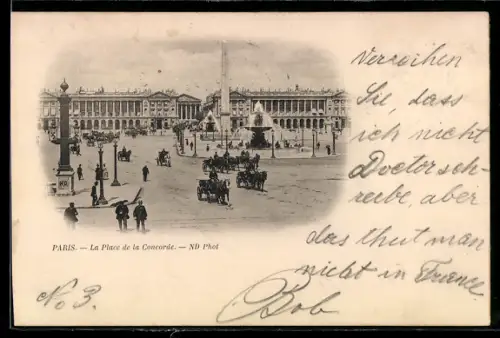 Verzeihen
Sie, dass
ich nicht
Doctor sch-
reibe, aber
das thut man
nicht in France
Bob
PARIS. — La Place de la Concorde. — ND Phot
No 3.